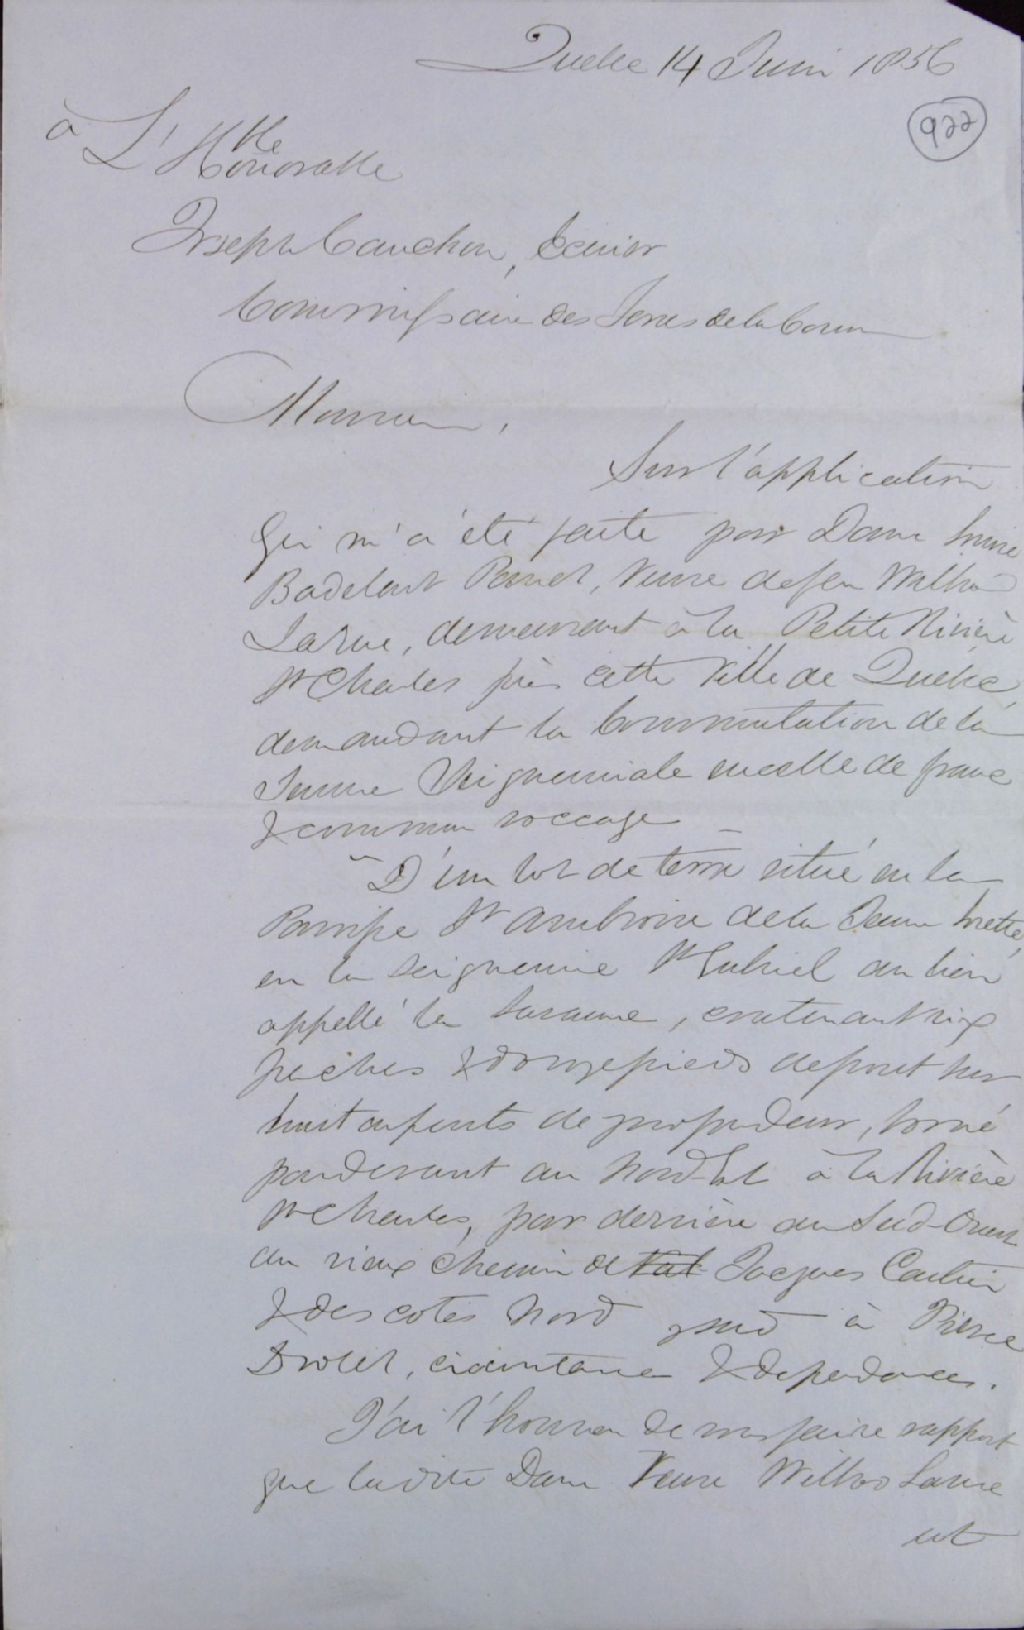 Quebec 14 Juin 1856
922
à L'Hble
Honorable
Joseph Cauchon, Ecuier
Commissaire des Terres de la Couronne
Monsieur,
Sur l'application
qui m'a été faite par Dame Luce
Badelart Panet, Veuve de feu Wilbro
Larue, demeurant à la Petite Rivière
St Charles près cette Ville de Quebec
demandant la Commutation de la
Tenure Seigneuriale en celle de franc
& commun soccage —
"D'un lot de terre situé en la
Paroisse St Ambroise de la Jeune Lorette,
en la Seigneurie St Gabriel au lieu
appellé la Savanne, contenant six
perches & douze pieds de front sur
huit arpents de profondeur, borné
pardevant au Nord-Est à la Rivière
St Charles, par derrière au Sud-Ouest
au vieux chemin de Jacques Cartier
& des cotés Nord sud à Pierre
Drolet, circonstances & dependances.
J'ai l'honneur de vous faire rapport
que ladite Dame Veuve Wilbro Larue
est